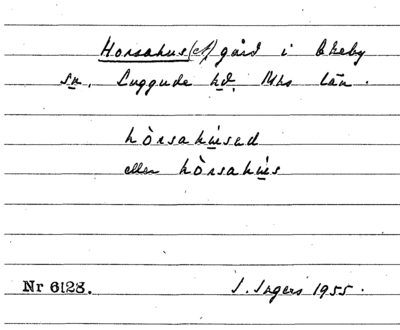 Horsahus(et) gård i Ekeby
sn, Luggude hd, Mhs län.
hòrsahùsed
eller hòrsahùs
Nr 6128. I. Ingers 1955.